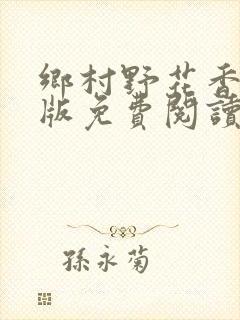 鄉村野花香
版免費閱讀
孫永菊